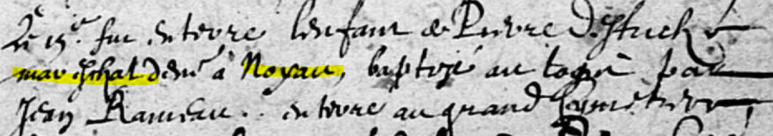 Le 15e. fut enterré l'enfant de Pierre
mareschal demt à Noyau, baptizé au logis par
Jean Rameau.. enterré au grand Cymetiere